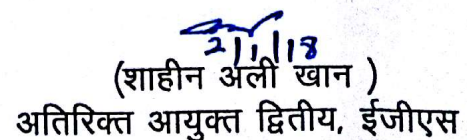 2/1/18
(शाहीन अली खान )
अतिरिक्त आयुक्त द्वितीय, ईजीएस